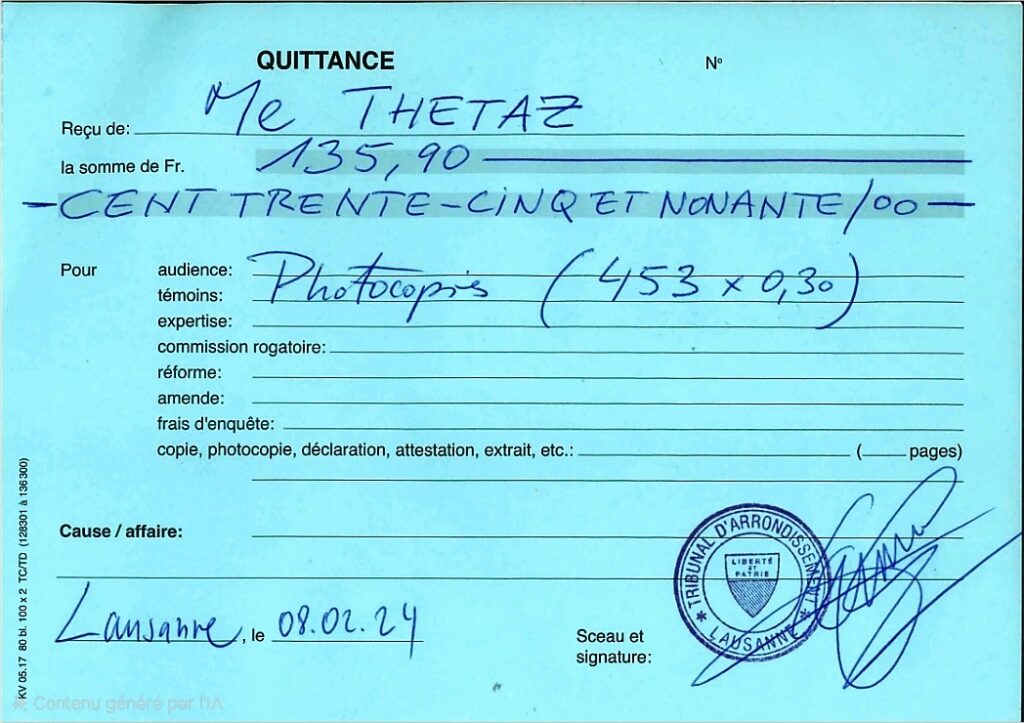 QUITTANCE
N°
Reçu de: Me THETAZ
la somme de Fr. 135,90
CENT TRENTE-CINQ ET NONANTE/00
Pour
audience: Photocopies (453 x 0,30)
témoins:
expertise:
commission rogatoire:
réforme:
amende:
frais d'enquête:
copie, photocopie, déclaration, attestation, extrait, etc.: ( pages)
Cause / affaire:
Lausanne, le 08.02.24
Sceau et
signature:
TRIBUNAL D'ARRONDISSEMENT
LIBERTÉ
ET
PATRIE
* LAUSANNE *
KV 05.17 80 bl. 100 x 2 TC/TD (128301 à 136300)
Contenu généré par l'IA